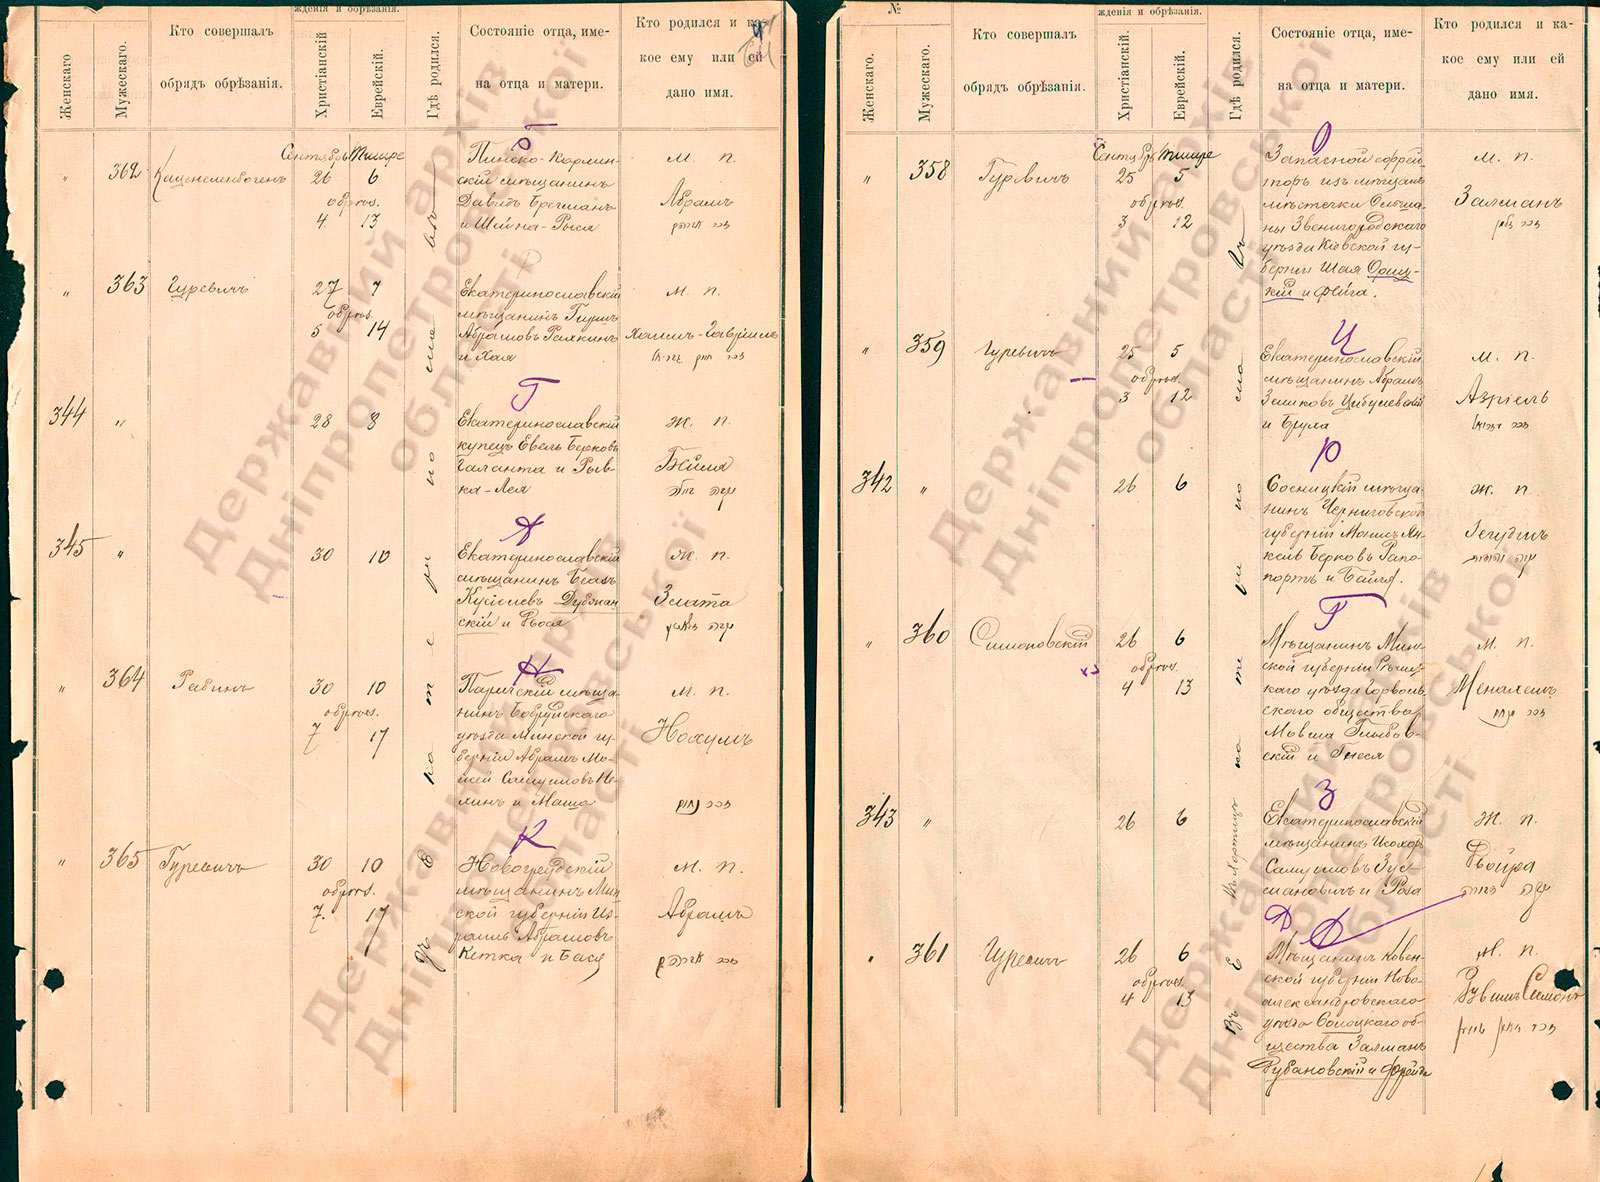 ждения и обрѣзания.
Женскаго
Мужескаго.
Кто совершалъ
обрядъ обрѣзанія.
Христіанскій
Еврейскій.
Гдѣ родился.
Состояніе отца, име-
на отца и матери.
Кто родился и ка-
кое ему или ей
дано имя.
Сентябрь Тишре
„ 362 Каценеленбогенъ 26 6
обрѣз.
4 13
Пинско-Карлин-
скій мѣщанинъ
Давидъ Брегманъ
и Шейна-Рыся
м. п.
Абрамъ
זכר אברהם
„ 363 Гуревичъ 27 7
обрѣз.
5 14
Екатеринославскій
мѣщанинъ
Абрамовъ
и Хая
м. п.
Хаимъ-Гавріилъ
344 „ 28 8
Г
Екатеринославскій
купецъ Евель Берковъ
Галанта и Рыв-
ка-Лея
ж. п.
Бейла
נקבה ביילה
345 „ 30 10
Д
Екатеринославскій
мѣщанинъ
Кусіелевъ Дубжан
скій и Рося
ж. п.
Злата
נקבה זלאטע
„ 364 Рабинъ 30 10
обрѣз.
7 17
Н
Паричскій мѣща-
нинъ Бобруйскаго
уѣзда Минской гу-
берніи Абрамъ Мо-
исей Самуиловъ Не-
линъ и Маша
м. п.
Нохумъ
זכר נחום
„ 365 Гуревичъ 30 10
обрѣз.
7. 17
К
Новогрудскій
мѣщанинъ Мин
ской губерніи Из-
раиль Абрамовъ
Кетка и Бася
м. п.
Абрамъ
זכר אברהם
№
ждения и обрѣзания.
Женскаго.
Мужескаго.
Кто совершалъ
обрядъ обрѣзанія.
Христіанскій.
Еврейскій.
Гдѣ родился.
Состояніе отца, име-
на отца и матери.
Кто родился и ка-
кое ему или ей
дано имя.
Сентябрь Тишре
„ 358 Гуревичъ 25 5
обрѣз.
3 12
О
Запасной ефрей
торъ изъ мѣщанъ
мѣстечки Ольша-
ны Звенигородскаго
уѣзда Кіевской гу-
берніи Шая
кій и Фейга.
м. п.
Залманъ
זכר זלמן
„ 359 Гуревичъ 25 5
обрѣз.
3 12
Ц
Екатеринославскій
мѣщанинъ Абрамъ
Цибулевскій
и Брула
м. п.
Азріель
זכר עזריאל
342 „ 26 6
Р
Сосницкій мѣща-
нинъ Черниговской
губерніи Ян-
кель Берковъ Рапо-
портъ и Бейля.
ж. п.
Іегудисъ
נקבה יהודית
„ 360 Симоновскій 26 6
обрѣз.
4 13
Г
Мѣщанинъ Мин-
ской губерніи Рѣчиц-
каго уѣзда
скаго общества
Мовша Глыбов-
скій и Гнеся
м. п.
Менахемъ
זכר מנחם
343 „ 26 6
З
Екатеринославскій
мѣщанинъ Исохоръ
Самуиловъ Зус-
мановичъ и Роза
ж. п.
Двойра
נקבה דבורה
„ 361 Гуревичъ 26 6
обрѣз.
4 13
Д
Мѣщанинъ Ковен-
ской губерніи Ново-
александровскаго
уѣзда Солоцкаго об-
щества Залманъ
Рубановскій и Фрейда
м. п.
Рувимъ Симонъ
זכר ראובן שמעון
Державний архів
Дніпропетровської
області